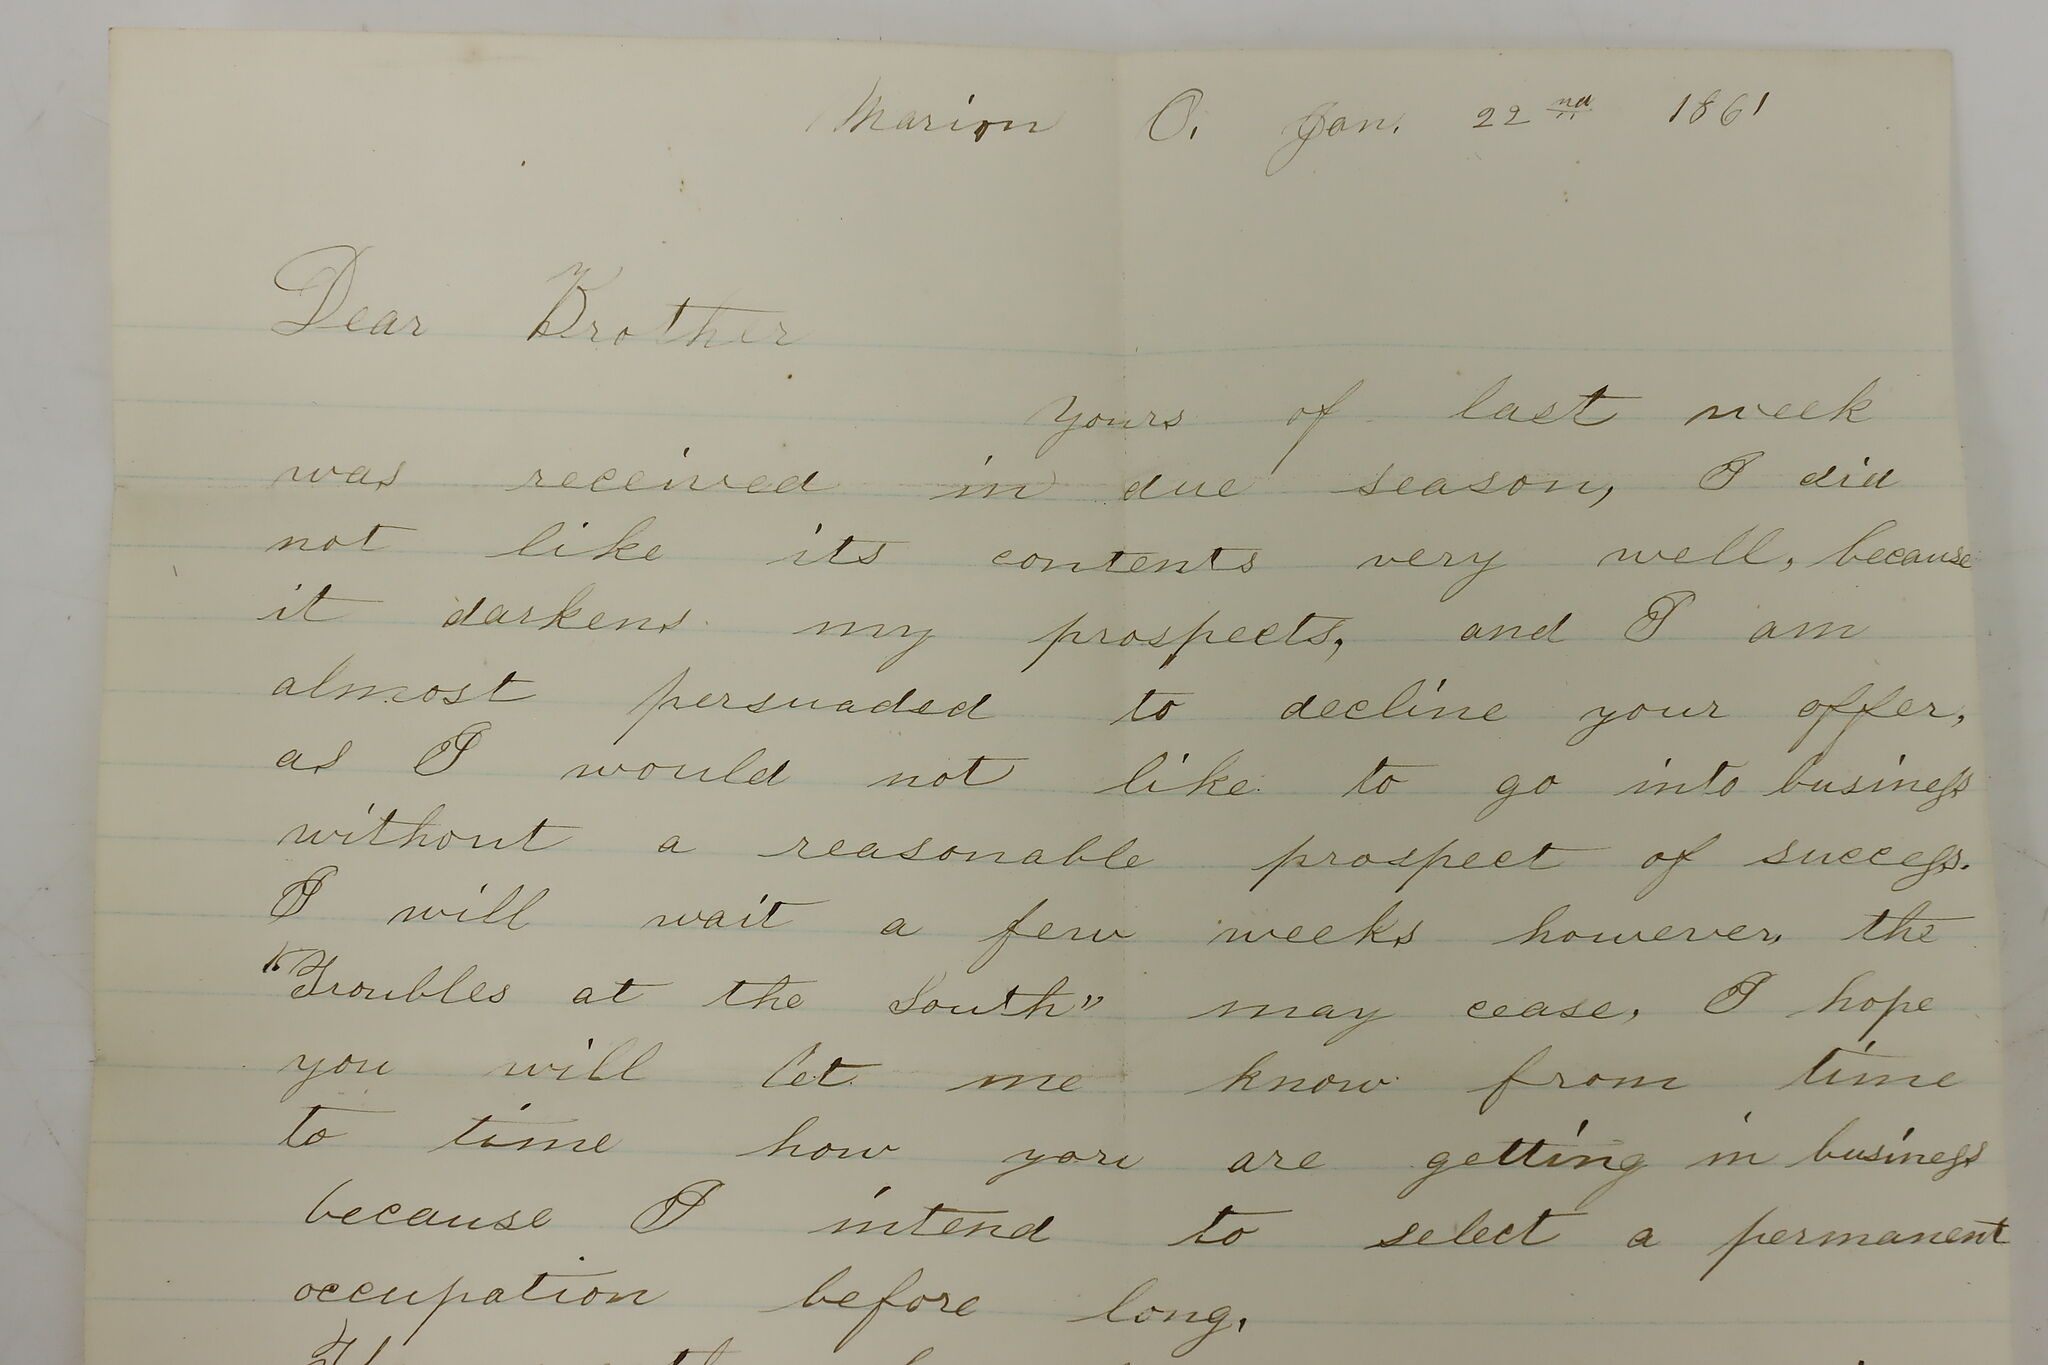 Marion O. Jan. 22nd 1861
Dear Brother
Yours of last week
was received in due season, I did
not like its contents very well, because
it darkens my prospects, and I am
almost persuaded to decline your offer,
as I would not like to go into business
without a reasonable prospect of success.
I will wait a few weeks however, the
"Troubles at the South" may cease, I hope
you will let me know from time
to time how you are getting in business
because I intend to select a permanent
occupation before long.